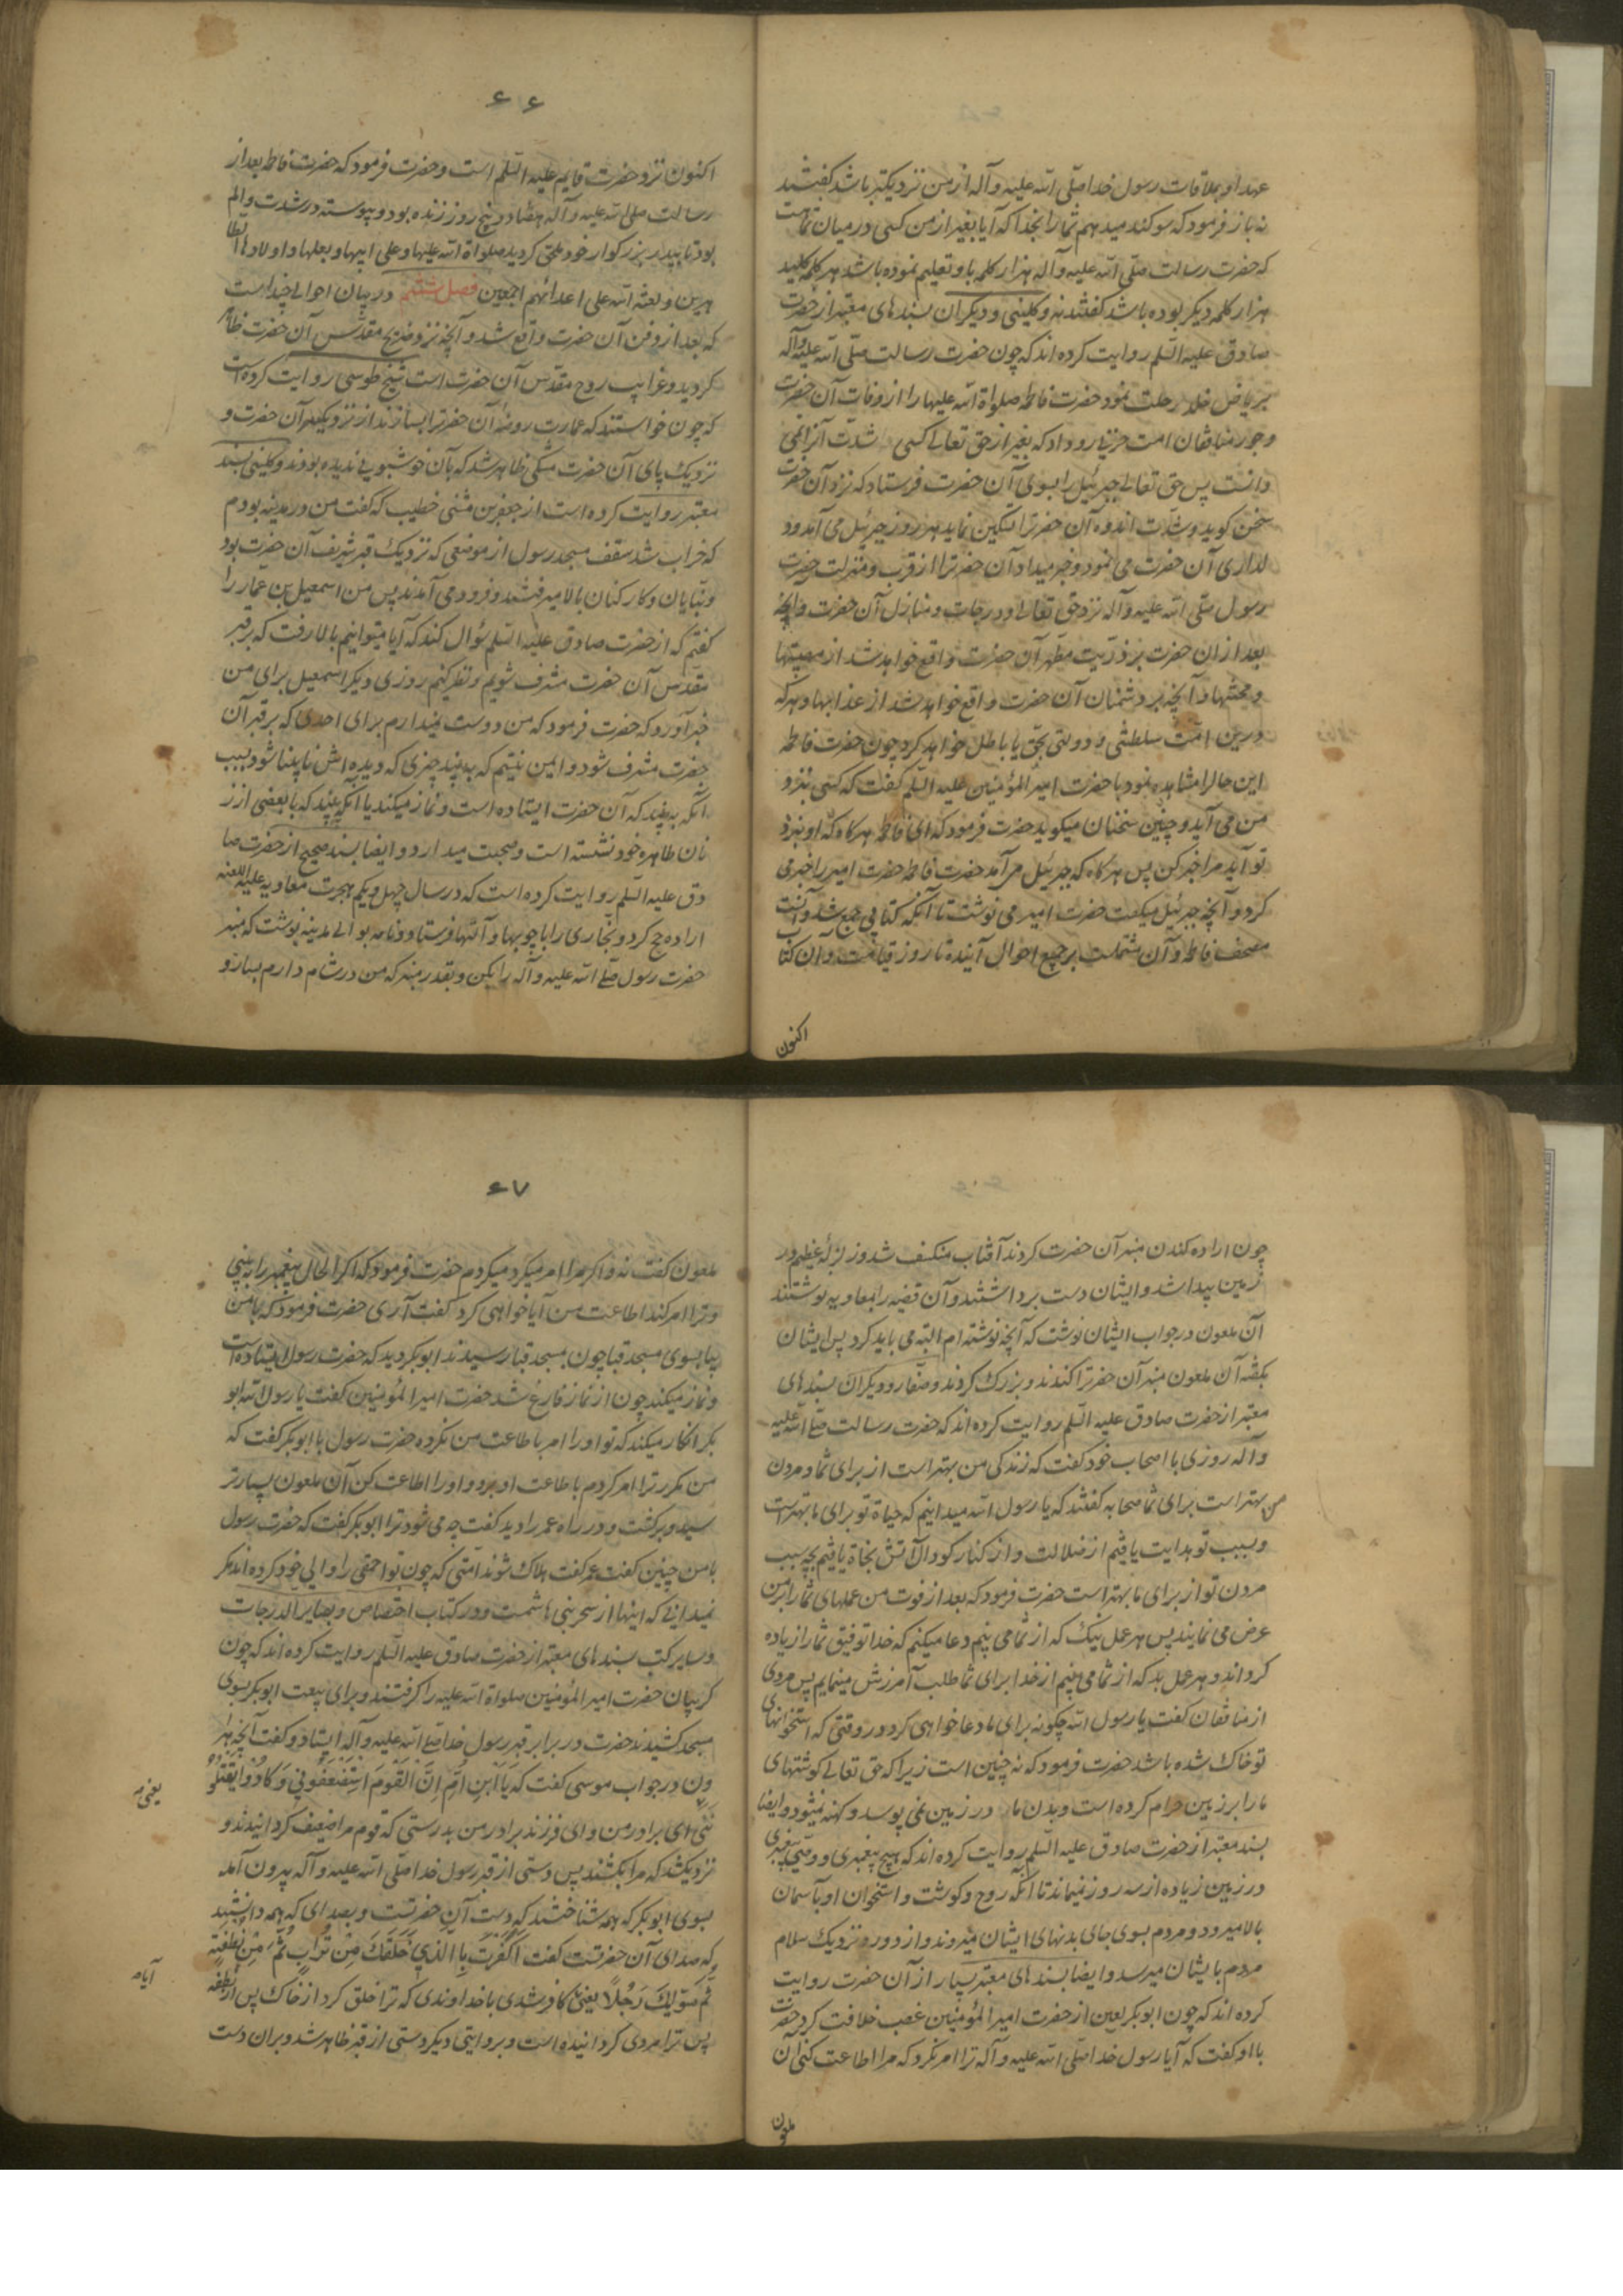 عهد او بملاقات رسول خدا صلّی الله علیه و آله از من نزدیکتر باشد گفتند
نه باز فرمود که سوکند میدهم شما را بخدا که آیا بغیر از من کسی در میان شما هست
که حضرت رسالت صلّی الله علیه و آله هزار کلمه باو تعلیم نموده باشد هر کلمه کلید
هزار کلمه دیگر بوده باشد گفتند نه و کلینی و دیکران بسندهای معتبر از حضرت
صادق علیه السّلم روایت کرده اند که چون حضرت رسالت صلّی الله علیه و آله
بریاض خلد رحلت نمود حضرت فاطمه صلواة الله علیها را از وفات آن حضرت
و جور منافقان امت حزنی رو داد که بغیر از حق تعالی کسی شدّت آنرا نمی
دانست پس حق تعالی جبرئیل را بسوی آن حضرت فرستاد که نزد آن حضرت
سخن کوید و شدّت اندوه آن حضرترا تسکین نماید هر روز جبرئیل می آمد و د
لداری آن حضرت می نمود و خبر میداد آن حضرترا از قرب و منزلت حضرت
رسول صلّی الله علیه و آله نزد حق تعالی و درجات و منازل آن حضرت و آنچه
بعد از ان حضرت بر ذرّیت مطهر آن حضرت واقع خواهد شد از مصیبتها
و محنتها و آنچه بر دشمنان آن حضرت واقع خواهد شد از عذابها و هر که
درین امّت سلطنتی و دولتی بحق یا باطل خواهد کرد چون حضرت فاطمه
این حالرا مشاهده نمود با حضرت امیر المؤمنین علیه السّلم گفت که کسی بنزد
من می آید و چنین سخنان میکوید حضرت فرمود که ای فاطمه هرکاه که او بنزد
تو آید مرا خبر کن پس هرکاه که جبرئیل می آمد حضرت فاطمه حضرت امیر را خبر می
کرد و آنچه جبرئیل میکفت حضرت امیر می نوشت تا آنکه کتابی جمع شد و آنست
مصحف فاطمه و آن مشتملست بر جمیع احوال آینده تا روز قیامت و آن کتاب
اکنون
۶۶
اکنون نزد حضرت قایم علیه السّلم است و حضرت فرمود که حضرت فاطمه بعد از
رسالت صلی الله علیه و آله هفتاد و پنج روز زنده بود و پیوسته در شدت و الم
بود تا بپدر بزرکوار خود ملحق کردید صلواة الله علیها و علی ابیها و بعلها و اولادها الطا
هرین و لعنة الله علی اعدائهم اجمعین فصل ششم در بیان احوالی چند است
که بعد از دفن آن حضرت واقع شد و آنچه نزد ضریح مقدّس آن حضرت ظاهر
کردید و غرایب روح مقدّس آن حضرت است شیخ طوسی روایت کرده است
که چون خواستند که عمارت روضهٔ آن حضرترا بسازند از نزدیک سر آن حضرت و
نزدیک پای آن حضرت مشکی ظاهر شد که بآن خوشبویی ندیده بودند و کلینی بسند
معتبر روایت کرده است از جعفر بن مثنی خطیب که گفت من در مدینه بودم
که خراب شد سقف مسجد رسول از موضعی که نزدیک قبر شریف آن حضرت بود
و بنایان و کارکنان بالا میرفتند و فرود می آمدند پس من اسمعیل بن عمار را
گفتم که از حضرت صادق علیه السّلم سؤال کند که آیا میتوانیم بالا رفت که بر قبر
مقدّس آن حضرت مشرف شویم و نظر کنیم روزی دیکر اسمعیل برای من
خبر آورد که حضرت فرمود که من دوست نمیدارم برای احدی که بر قبر آن
حضرت مشرف شود و ایمن نیستم که به بیند چیزی که دیده اش نابینا شود بسبب
آنکه به بیند که آن حضرت ایستاده است و نماز میکند یا آنکه بیند که با بعضی از ز
نان طاهره خود نشسته است و صحبت میدارد و ایضا بسند صحیح از حضرت صا
دق علیه السّلم روایت کرده است که در سال چهل و یکم هجرت معاویه علیه اللعنه
اراده حج کرد و نجّاری را با چوبها و آلتها فرستاد و نامه بوالی مدینه نوشت که منبر
حضرت رسول صلی الله علیه و آله را بکن و بقدر منبر که من در شام دارم بساز و
چون اراده کندن منبر آن حضرت کردند آفتاب منکسف شد و زلزلهٔ عظیم در
زمین پیدا شد و ایشان دست برداشتند و آن قضیه را بمعاویه نوشتند
آن ملعون در جواب ایشان نوشت که آنچه نوشته ام البته می باید کرد پس ایشان
بکفته آن ملعون منبر آن حضرترا کندند و بزرک کردند و صفّار و دیکران بسندهای
معتبر از حضرت صادق علیه السّلم روایت کرده اند که حضرت رسالت صلی الله علیه
و آله روزی با اصحاب خود گفت که زندکی من بهتر است از برای شما و مردن
من بهتر است برای شما صحابه گفتند که یا رسول الله میدانیم که حیاة تو برای ما بهتر است
و بسبب تو هدایت یافتیم از ضلالت و از کنار کودال آتش نجاة یافتیم بچه سبب
مردن تو از برای ما بهتر است حضرت فرمود که بعد از فوت من عملهای شما را بر من
عرض می نمایند پس هر عمل نیک که از شما می بینم دعا میکنم که خدا توفیق شما را زیاده
کرداند و هر عمل بد که از شما می بینم از خدا برای شما طلب آمرزش مینمایم پس مردی
از منافقان گفت یا رسول الله چکونه برای ما دعا خواهی کرد در وقتی که استخوانهای
تو خاک شده باشد حضرت فرمود که نه چنین است زیرا که حق تعالی کوشتهای
ما را بر زمین حرام کرده است و بدن ما در زمین نمی پوسد و کهنه نمیشود و ایضا
بسند معتبر از حضرت صادق علیه السّلم روایت کرده اند که هیچ پیغمبری و وصی پیغمبری
در زمین زیاده از سه روز نمیماند تا آنکه روح و کوشت و استخوان او بآسمان
بالا میرود و مردم بسوی جای بدنهای ایشان میروند و از دور و نزدیک سلام
مردم بایشان میرسد و ایضا بسندهای معتبر بسیار از آن حضرت روایت
کرده اند که چون ابوبکر لعین از حضرت امیر المؤمنین غصب خلافت کرد حضرت
با او گفت که آیا رسول خدا صلّی الله علیه و آله ترا امر نکرد که مرا اطاعت کنی آن
ملعون
۶۷
ملعون گفت نه و اکر مرا امر میکرد میکردم حضرت فرمود که اکر الحال پیغمبر را به بینی
و ترا امر کند اطاعت من آیا خواهی کرد گفت آری حضرت فرمود که با من
بیا بسوی مسجد قبا چون بمسجد قبا رسیدند ابوبکر دید که حضرت رسول ایستاده است
و نماز میکند چون از نماز فارغ شد حضرت امیر المؤمنین گفت یا رسول الله ابو
بکر انکار میکند که تو او را امر باطاعت من نکرده حضرت رسول با ابوبکر گفت که
من مکرر ترا امر کردم باطاعت او برو و او را اطاعت کن آن ملعون بسیار تر
سید و برکشت و در راه عمر را دید گفت چه می شود ترا ابوبکر گفت که حضرت رسول
با من چنین گفت عمر گفت هلاک شوند امّتی که چون تو احمقی را والی خود کرده اند مکر
نمیدانی که اینها از سحر بنی هاشمست و در کتاب اختصاص و بصایر الدرجات
و سایر کتب بسندهای معتبر از حضرت صادق علیه السّلم روایت کرده اند که چون
کریبان حضرت امیر المؤمنین صلواة الله علیه را کرفتند و برای بیعت ابوبکر بسوی
مسجد کشیدند حضرت در برابر قبر رسول خدا صلی الله علیه و آله ایستاد و گفت آنچه هر
ون در جواب موسی گفت که یَا ابْنِ اُمِّ اِنَّ الْقَوْمَ اسْتَضْعَفُونِی وَ کَادُوا یَقْتُلُو
نَنِی ای برادر من و ای فرزند برادر من بدرستی که قوم مرا ضعیف کردانیدند و
یعنی م
نزدیکشد که مرا بکشند پس دستی از قبر رسول خدا صلّی الله علیه و آله بیرون آمد
بسوی ابوبکر که همه شناختند که دست آن حضرتست و بصدای که همه دانستند
که صدای آن حضرتست گفت اَکَفَرْتَ بِا الَّذِی خَلَقَکَ مِنْ تُرَابٍ ثُمَّ مِنْ نُطْفَةٍ
ثُمَّ سَوّیکَ رَجُلاً یعنی کافر شدی با خداوندی که ترا خلق کرد از خاک پس از نطفه
آیا م
پس ترا مردی کردانیده است و بروایتی دیکر دستی از قبر ظاهر شد و بران دست